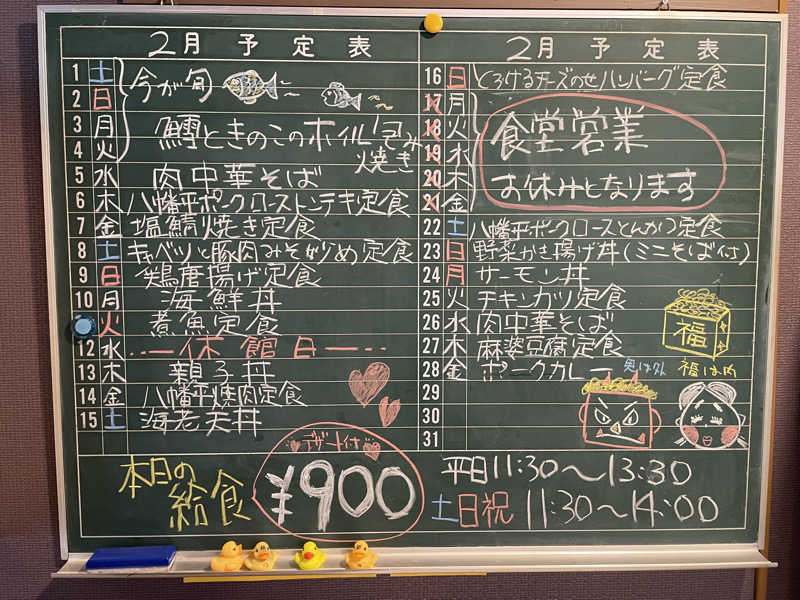 2月 予定表
1 土 今が旬
2 日
3 月 鱈ときのこのホイル包み
4 火 焼き
5 水 肉中華そば
6 木 八幡平ポークローストンテキ定食
7 金 塩鯖焼き定食
8 土 キャベツと豚肉みそ炒め定食
9 日 鶏唐揚げ定食
10 月 海鮮丼
11 火 煮魚定食
12 水 休館日
13 木 親子丼
14 金 八幡平焼肉定食
15 土 海老天丼
2月 予定表
16 日 とろけるチーズのせハンバーグ定食
17 月 食堂営業
18 火
19 水 お休みとなります
20 木
21 金
22 土 八幡平ポークロースとんかつ定食
23 日 野菜かき揚げ丼(ミニそば付)
24 月 サーモン丼
25 火 チキンカツ定食
26 水 肉中華そば
27 木 麻婆豆腐定食
28 金 ポークカレー
29
30
31
福
鬼は外 福は内
本日の
給食
デザート付
¥900
平日11:30～13:30
土日祝 11:30～14:00